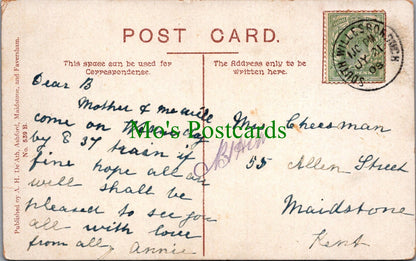 POST CARD.
This space can be used for
Correspondence.
The address only to be
written here.
SOUTH WILLESBOROUGH
JY 21
Dear B
Mother & me will
come on
by 8 37 train if
fine hope all are
well shall be
pleased to see you
all with love
from all, Annie
Mo's Postcards
Mrs Cheesman
55 Allen Street
Maidstone
Kent
Published by A. H. De'Ath, Ashford, Maidstone, and Faversham.
No. 539 B.